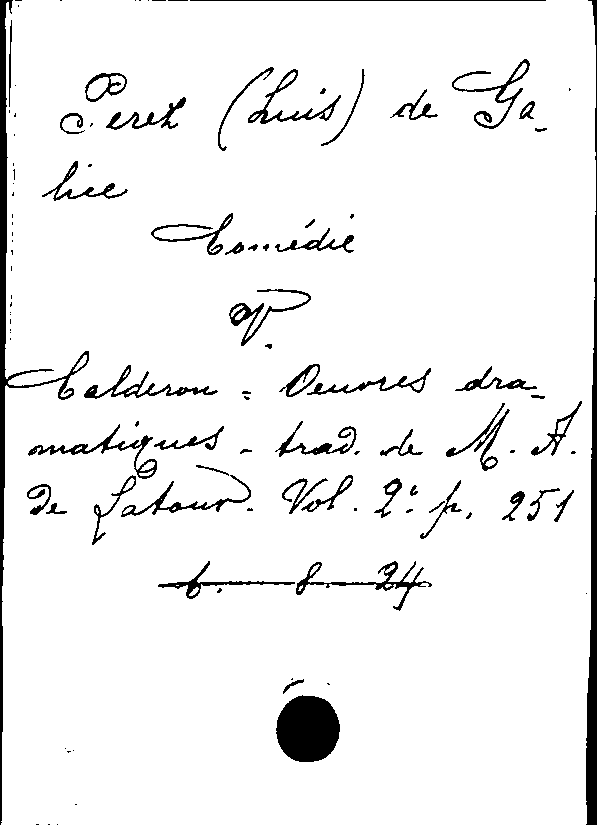 Perez (Luis) de Ga-
lice
Comédie
V.
Calderon = Oeuvres dra-
matiques - trad. de M. A.
de Latour. Vol. 2º p. 251
6. 8. 24